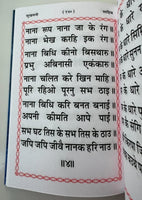 सुखमनी ( ९७ ) साहिब
नाना रूप नाना जा के रंग ॥
नाना भेख करहि इक रंग ॥
नाना बिधि कीनो बिसथारु ॥
प्रभु अबिनासी एकंकारु ॥
नाना चलित करे खिन माहि ॥
पूरि रहिओ पूरनु सभ ठाइ ॥
नाना बिधि करि बनत बनाई ॥
अपनी कीमति आपे पाई ॥
सभ घट तिस के सभ तिस के ठाउ ॥
जपि जपि जीवै नानक हरि नाउ ॥
॥४॥